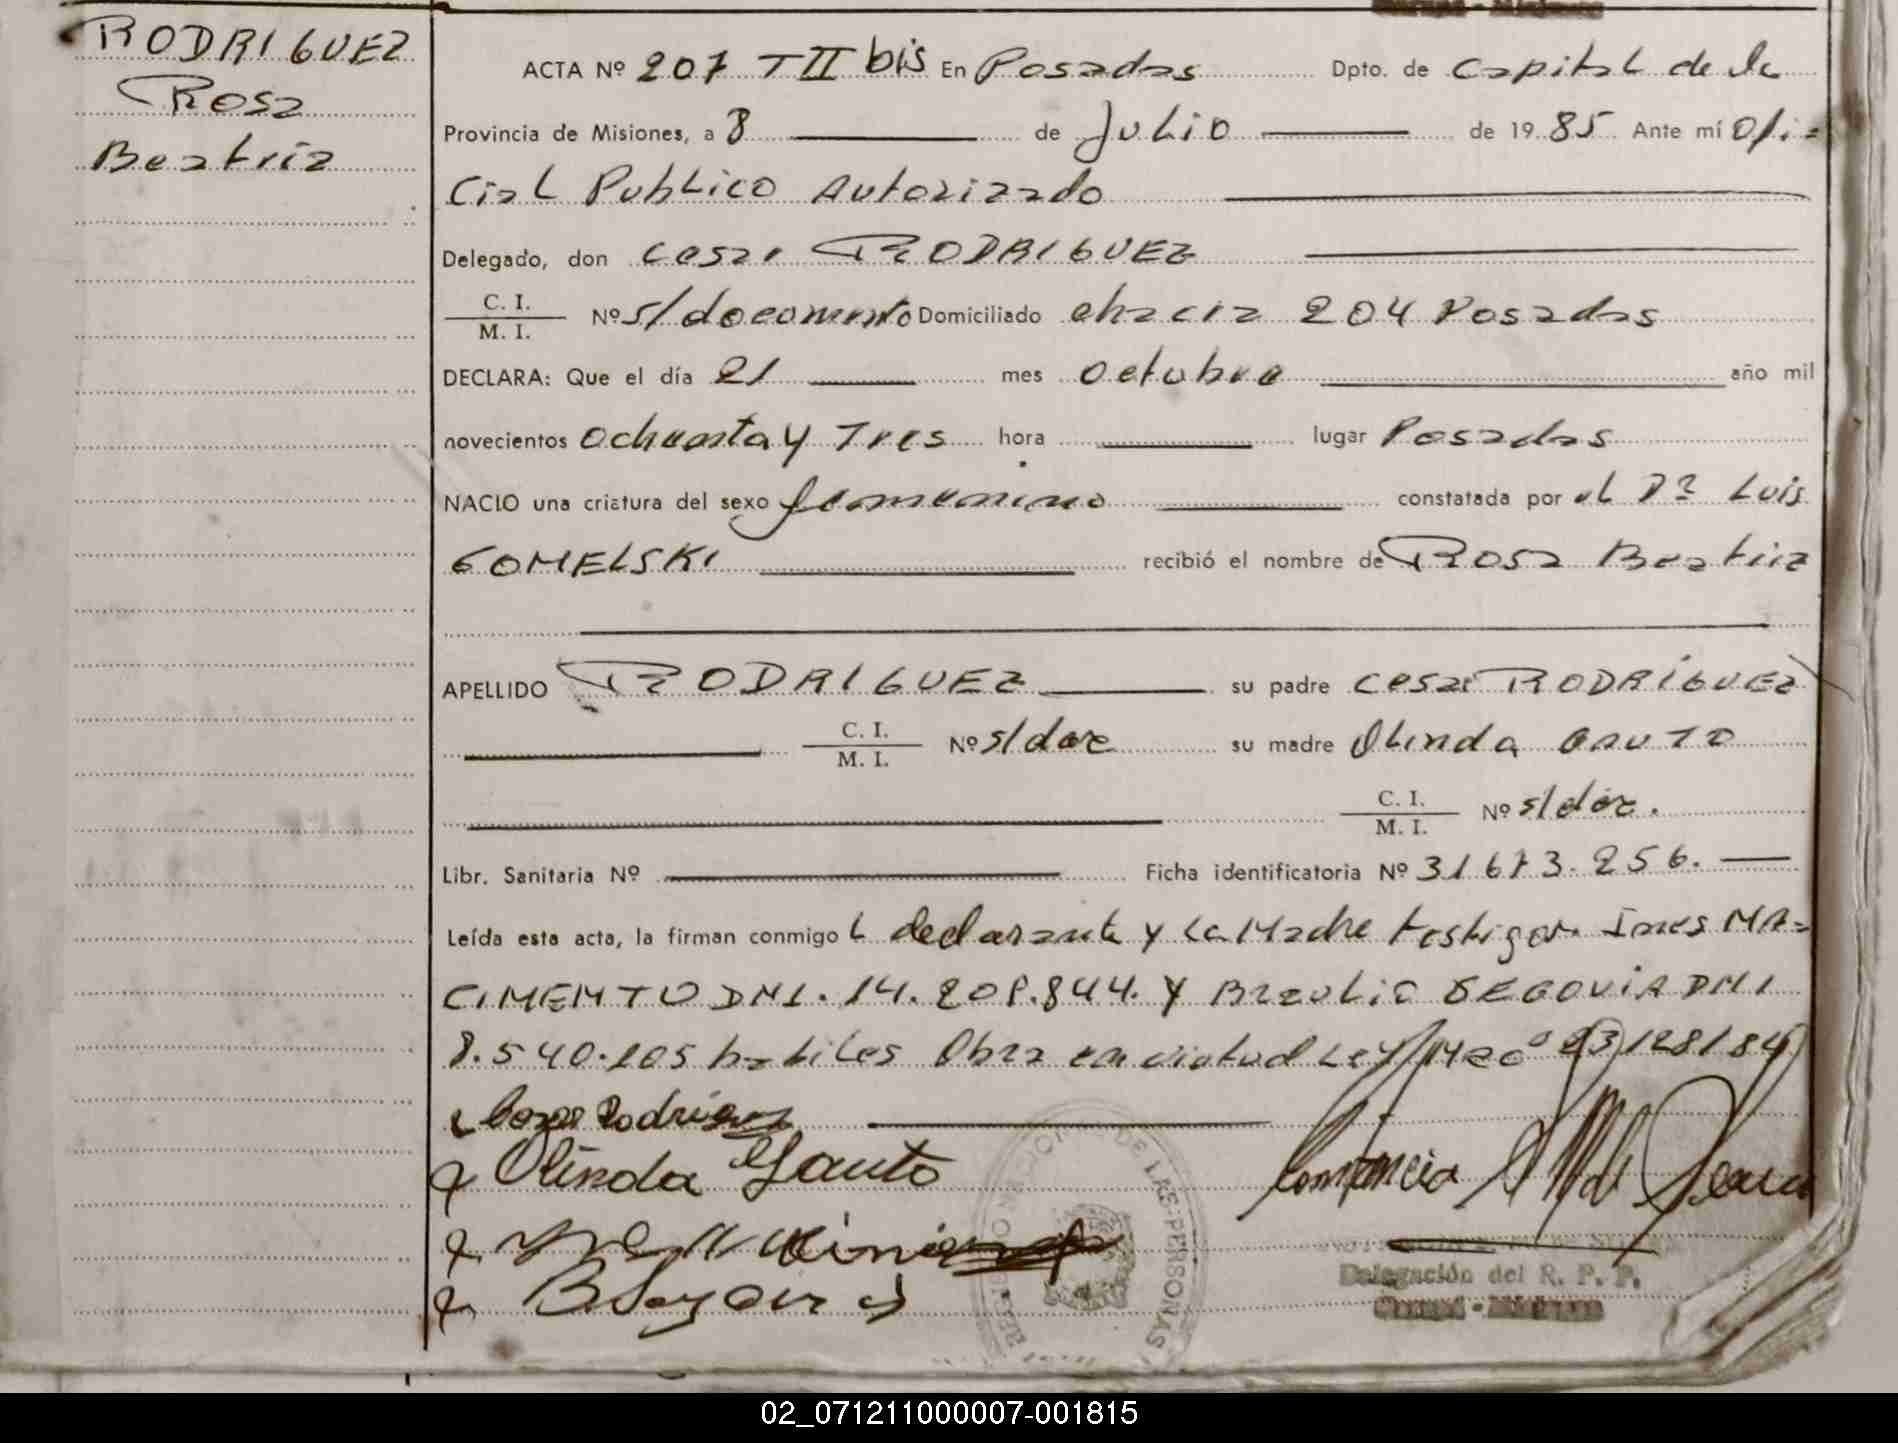 RODRIGUEZ
Rosa
Beatriz
ACTA Nº 207 TII bis En Posadas Dpto. de Capital de la
Provincia de Misiones, a 8 de Julio de 1985 Ante mí Ofi=
cial Publico Autorizado
Delegado, don Cesar RODRIGUEZ
C. I.
M. I.
Nº s/documento Domiciliado chacra 204 Posadas
DECLARA: Que el día 21 mes Octubre año mil
novecientos Ochenta y Tres hora lugar Posadas
NACIO una criatura del sexo femenino constatada por el Dr Luis
GOMELSKI recibió el nombre de Rosa Beatriz
APELLIDO RODRIGUEZ su padre Cesar RODRIGUEZ
C. I.
M. I.
Nº s/doc su madre Olinda
C. I.
M. I.
Nº s/doc.
Libr. Sanitaria Nº Ficha identificatoria Nº 31673.256.
Leída esta acta, la firman conmigo L declarante y La Madre testigos Ines NA=
CIMENTO DNI. 14.208.844. Y Braulio SEGOVIA DNI
8.540.205 habiles Obra en virtud Ley 23128/84
Cesar Rodriguez
Olinda Gauto
B Segovia
REGISTRO DE LAS PERSONAS
Delegación del R. P. P.
02_071211000007-001815